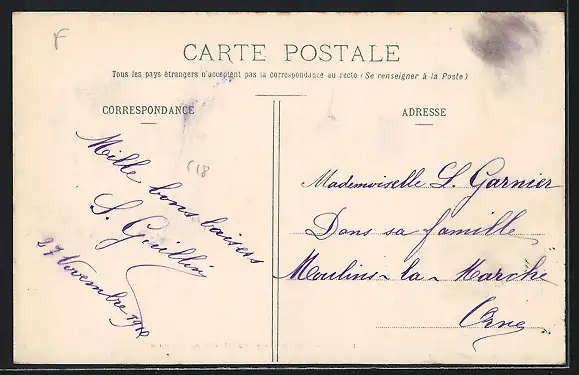 F
CARTE POSTALE
Tous les pays étrangers n'acceptent pas la correspondance au recto (Se renseigner à la Poste)
CORRESPONDANCE
Mille bons baisers
S. Guillin
27 Novembre
C18
ADRESSE
Mademoiselle S. Garnier
Dans sa famille
Moulins-la-Marche
Orne